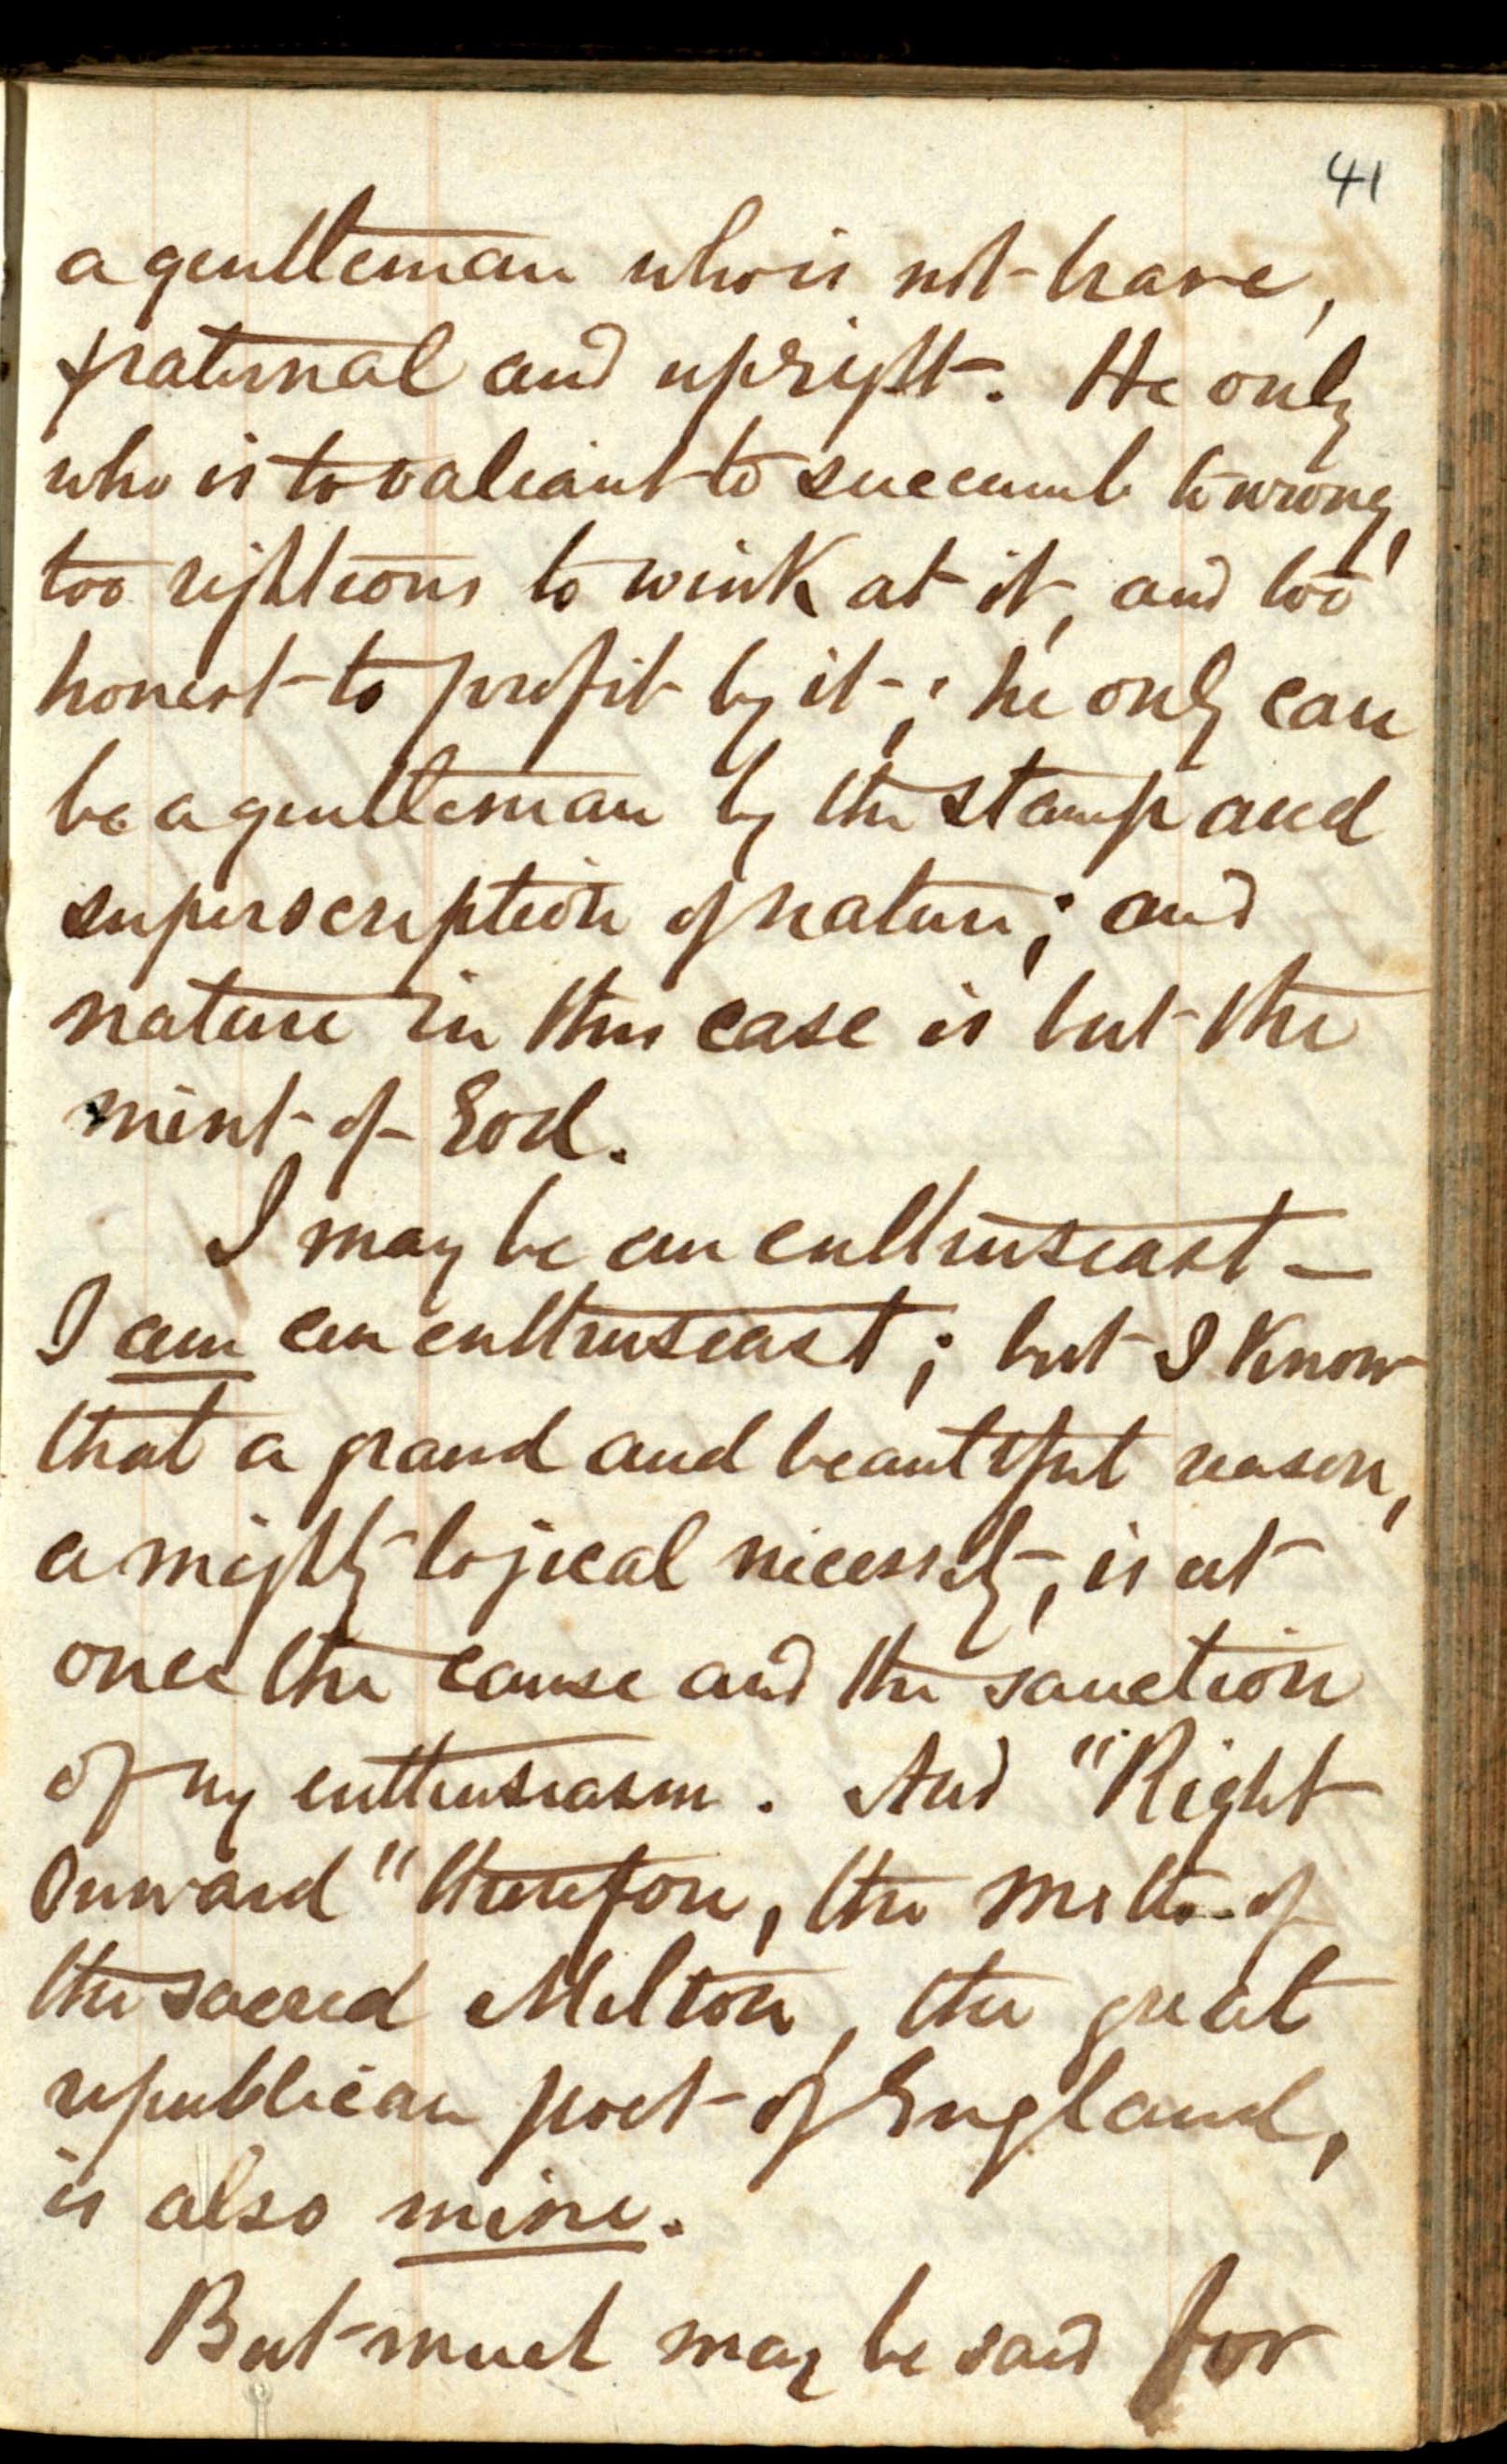 41
a gentleman who is not brave,
fraternal and upright. He only
who is too valiant to succumb to wrong,
too righteous to wink at it, and too
honest to profit by it; he only can
be a gentleman by the stamp and
superscription of nature; and
nature in this case is but the
mint of God.
I may be an enthusiast —
I am an enthusiast; but I know
that a grand and beautiful reason,
a mighty logical necessity, is at
once the cause and the sanction
of my enthusiasm. And "Right
Onward" therefore, the motto of
the sacred Milton, the great
republican poet of England,
is also mine.
But much may be said for